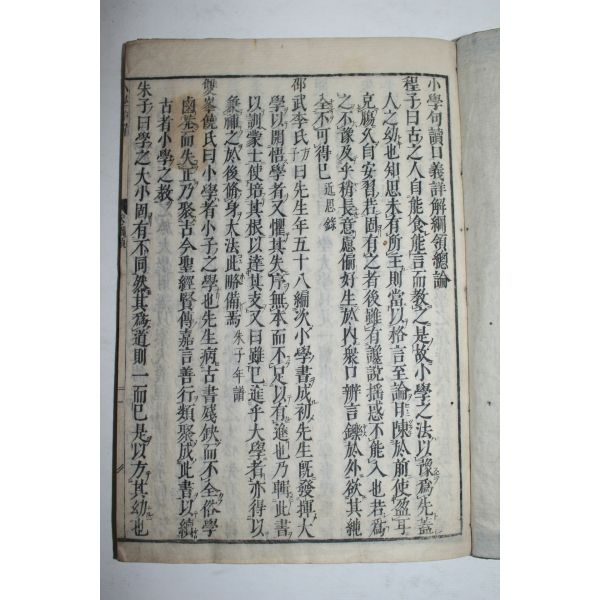 小學句讀口義詳解綱領總論
程子曰古之人自能食能言而敎之是故小學之法以豫爲先蓋
人之幼也知思未有所主則當以格言至論日陳於前使盈耳
充腹久自安習若固有之者後雖有讒說搖惑不能入也若爲
之不豫及乎稍長意慮偏好生於內衆口辨言鑠於外欲其純
全不可得已 近思錄
邵武李氏曰先生年五十八編次小學書成初先生旣發揮大
學以開悟學者又懼其失序無本而不足以有進也乃輯此書
以訓蒙士使培其根以達其支又曰雖已進乎大學者亦得以
兼補之於後脩身大法此略備焉 朱子年譜
雙峯饒氏曰小學者小子之學也先生病古書殘缺而不全俗學
鹵莽而失正乃聚古今聖經賢傳嘉言善行類聚成此書以續
古者小學之敎
朱子曰學之大小固有不同然其爲道則一而已是以方其幼也